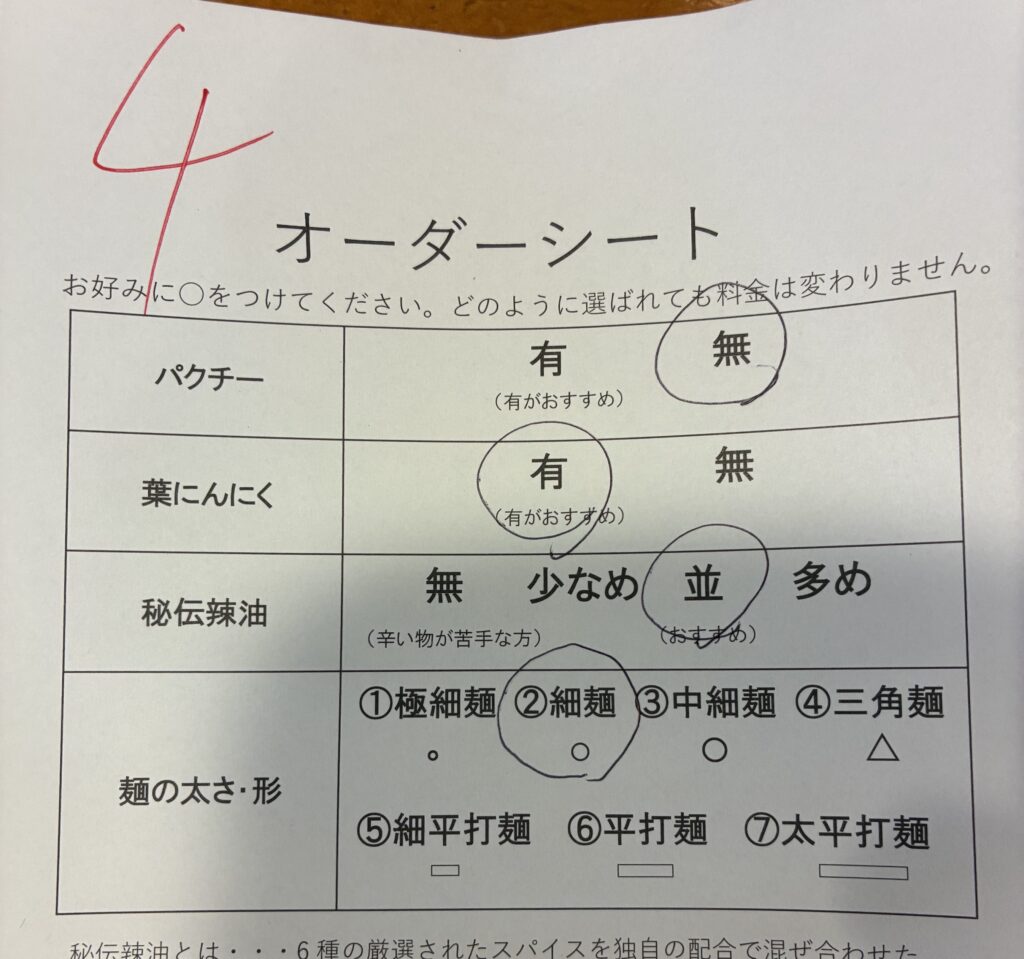 4
オーダーシート
お好みに○をつけてください。どのように選ばれても料金は変わりません。
パクチー 有 無
（有がおすすめ）
葉にんにく 有 無
（有がおすすめ）
秘伝辣油 無 少なめ 並 多め
（辛い物が苦手な方） （おすすめ）
麺の太さ・形 ①極細麺 ②細麺 ③中細麺 ④三角麺
⑤細平打麺 ⑥平打麺 ⑦太平打麺
秘伝辣油とは・・・6種の厳選されたスパイスを独自の配合で混ぜ合わせた